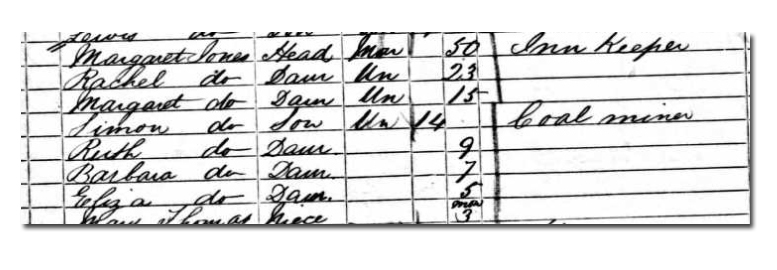 Lewis do
Margaret Jones Head Mar 50 Inn Keeper
Rachel do Daur Un 23
Margaret do Daur Un 15
Simon do Son Un 14 Coal miner
Ruth do Daur. 9
Barbara do Daur. 7
Eliza do Daur. 5
Mary Thomas Niece mon 3